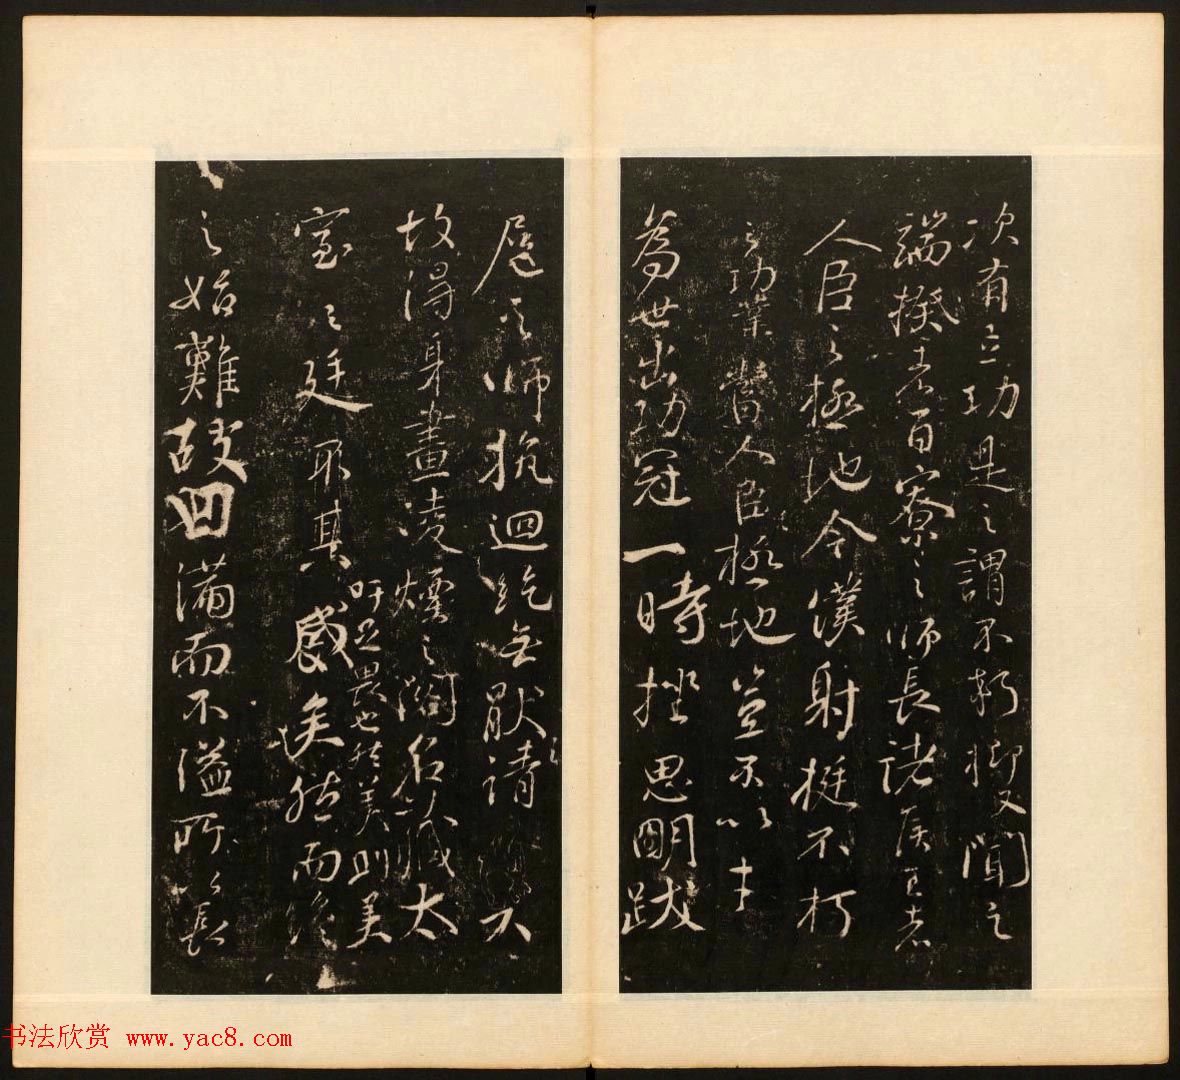 次有立功是之謂不朽抑又聞之
端揆者百寮之師長諸侯王者
人臣之極地今僕射挺不朽
之功業當人臣極地豈不以才
為世出功冠一時挫思明跋
扈之師抗迴紇無厭之請不
故得身畫凌煙之閣名藏太
吁足畏也然美則美
室之廷耶其盛矣然而終
之始難故曰滿而不溢所以長
书法欣赏 www.yac8.com